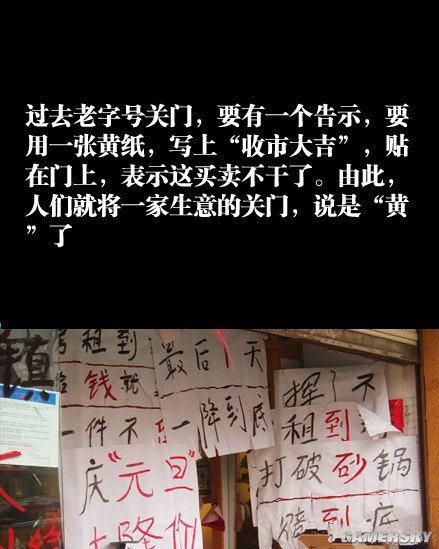 过去老字号关门，要有一个告示，要
用一张黄纸，写上“收市大吉”，贴
在门上，表示这买卖不干了。由此，
人们就将一家生意的关门，说是“黄
”了
租到
钱就
一件不
最后1天
一降到底
庆“元旦”
大降价
挥了不
租到
打破砂锅
到底
GAMERSKY